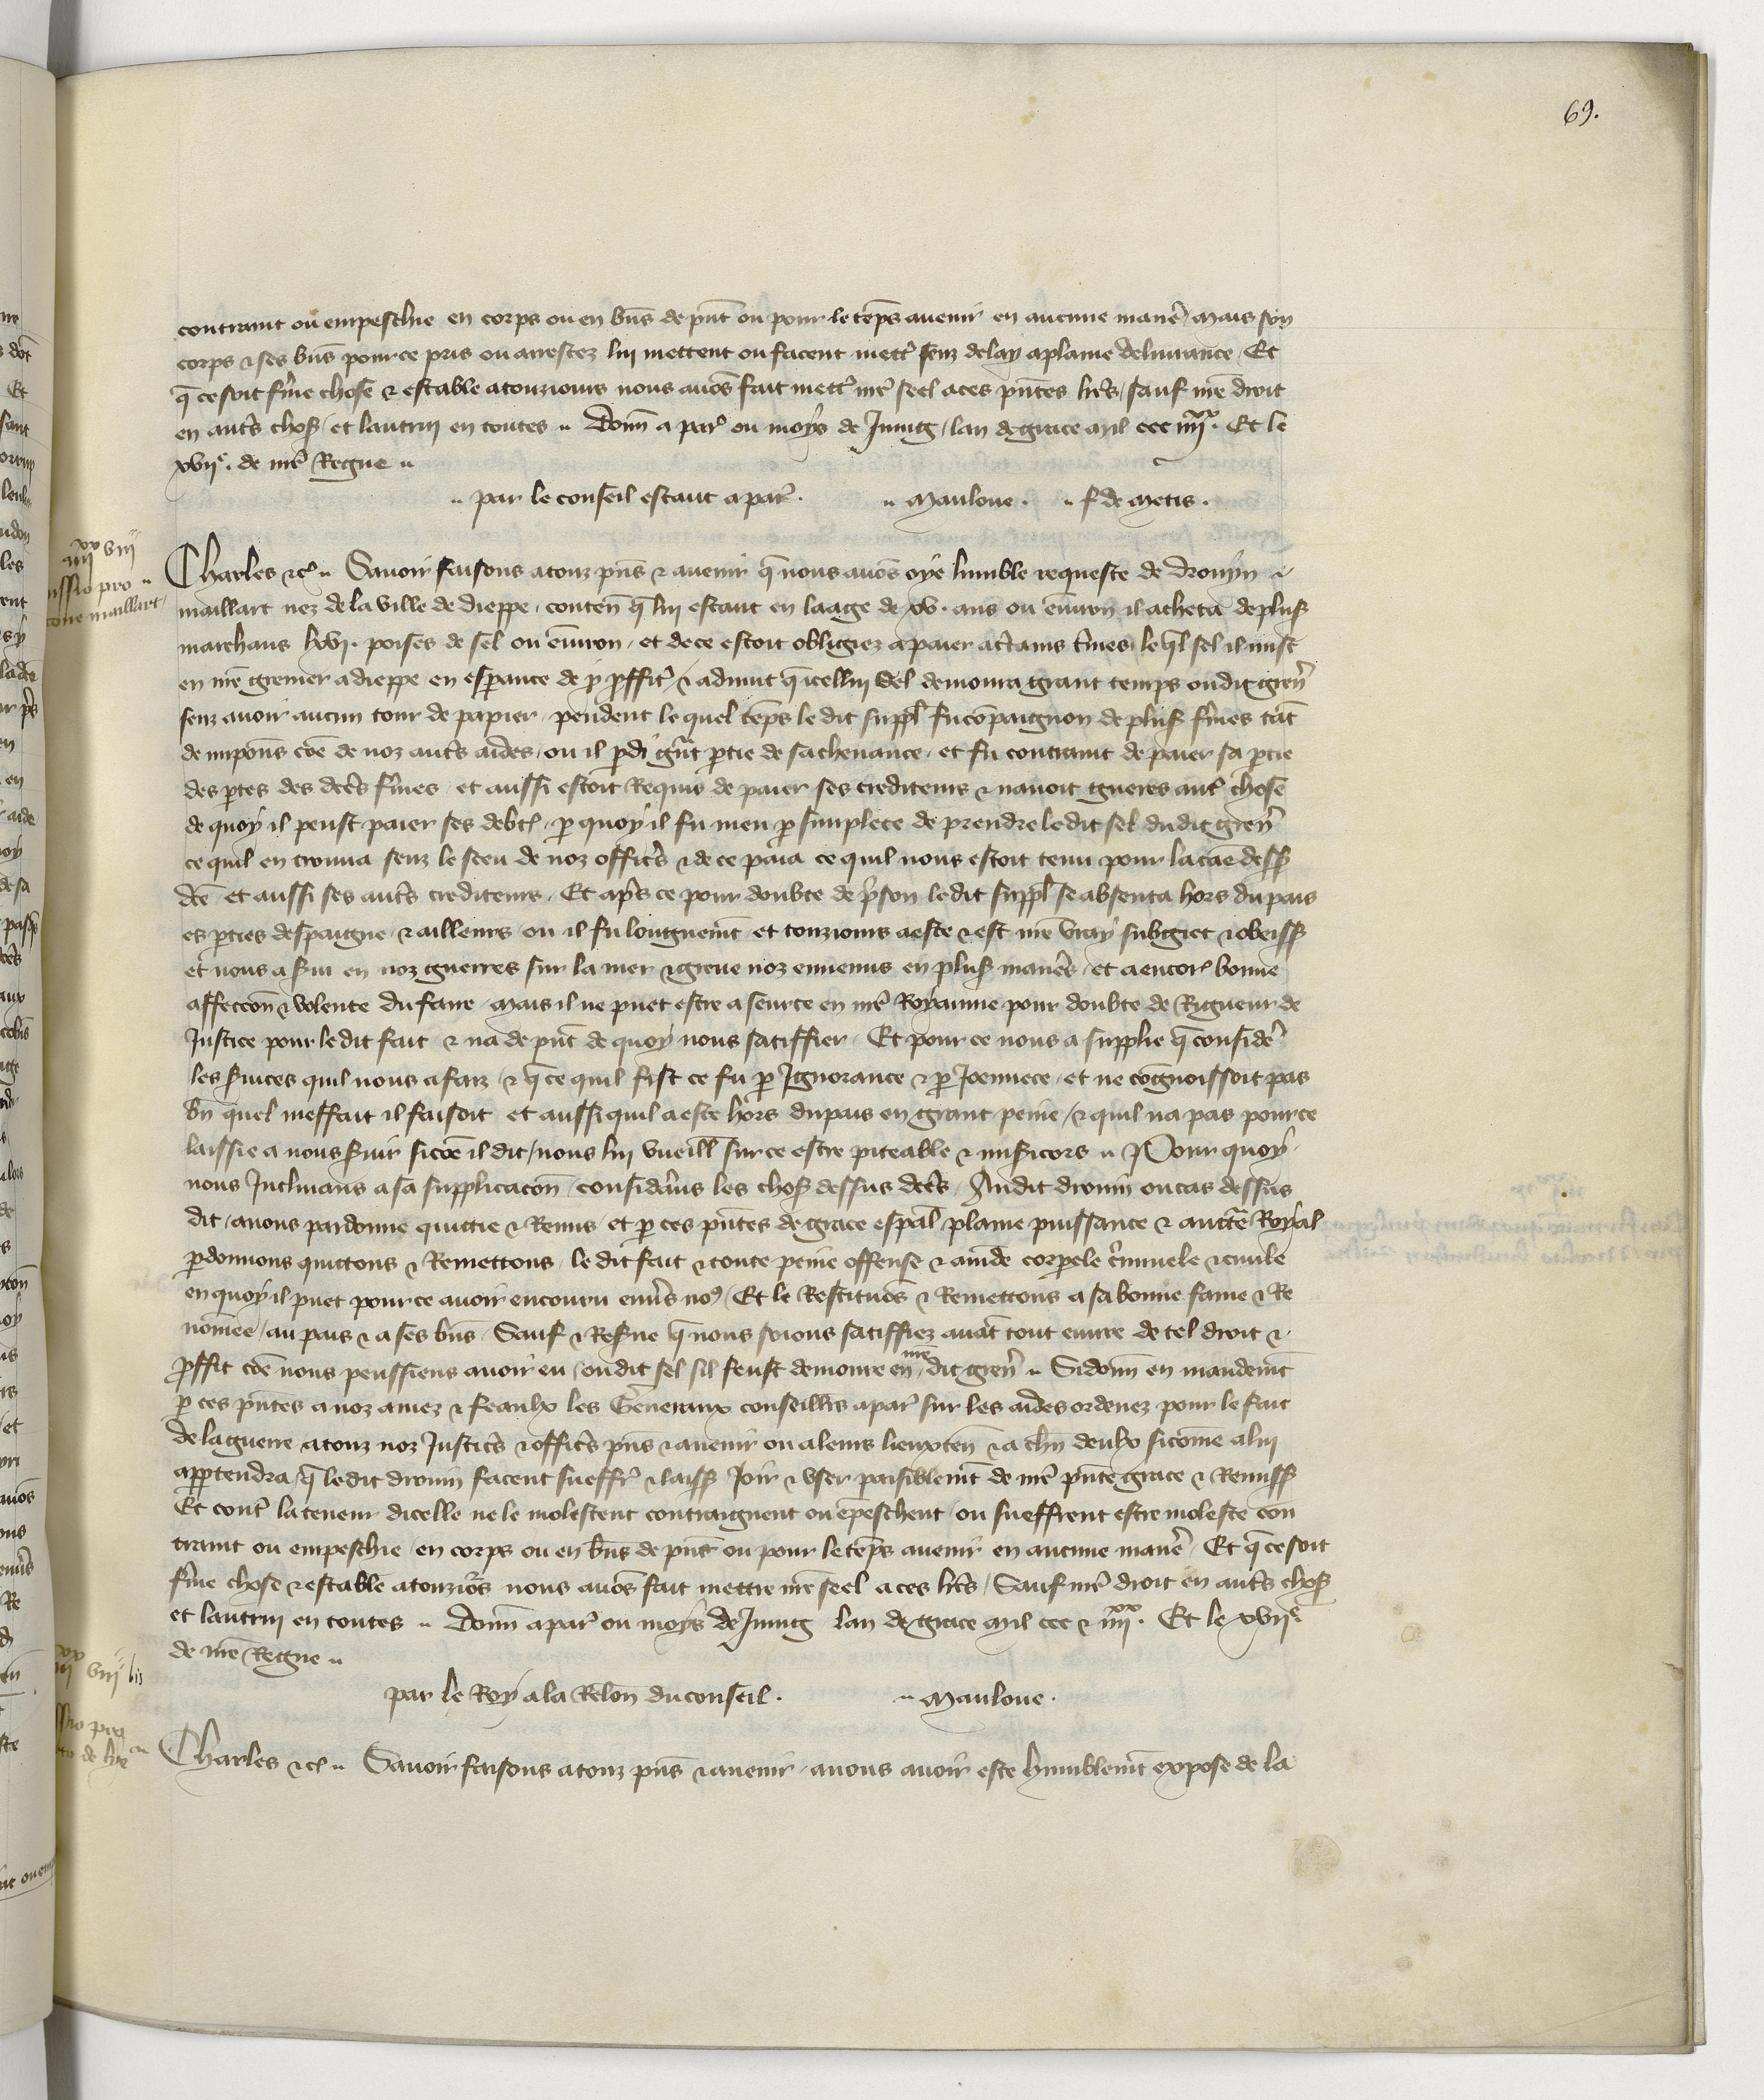 69.
contraint ou empeschie en corps ou en bn̄s de pn̄t ou pour le tēps auenir en aucune manē / mais son
corps & ses bn̄s pour ce pris ou arrestez lui mettent ou facent mett̉ senz delay a plaine deliurance / Et
q̄ ce soit f̉me chose & estable a touziours nous auōs fait mett̉ nr̄e seel a ces pn̄tes lr̄es / sauf nr̄e droit
en aut̄s chos̄ / et lautrui en toutes .. Donn̄ a par̉ ou moys de Juing / lan de grace mil ccc iiii xx . Et le
xviie . de nr̄e Regne ..
.. par le conseil estant a par̉ . .. Mauloue . .. f de Metis .
iiii xx viii
Charles &c̉ .. Sauoir faisons a touz pn̄s & auenir q̄ nous auōs oye humble requeste de Drouyn
ussio pro
maillart nez de la ville de dieppe / conten̄ q̄ lui estant en laage de xv . ans ou enuiron il acheta de plus̄
oune maillart
marchans lxvj . poises de sel ou enuiron / et de ce estoit obligiez a paier a c̉tains t̉mes / le q̄l sel il mist
en nr̄e grenier a dieppe en esperance de y p̄ffit̉ / & aduint q̄ icellui sel demoura grant temps ou dit gren̄
senz auoir aucun tour de papier / pendent le quel tēps le dit suppl̄ fu cōpaignon de plus̄ f̉mes tāt
de imposn̄s cōe de noz aut̄s aides / ou il p̄di gn̄t p̄tie de sa cheuance / et fu contraint de paier sa p̄tie
des p̄tes des dc̄es f̉mes / et aussi estoit Requis de paier ses crediteurs & nauoit gueres aut̉ chose
de quoy il peust paier ses debt̉ / p̄ quoy il fu meu p̄ simplece de prendre le dit sel du dit gren̄
ce quil en trouua senz le sceu de noz offic̄s & de ce paia ce quil nous estoit tenu pour la cā̄e dess̄
dc̄e et aussi ses aut̄s crediteurs / Et ap̄s ce pour doubte de p̉son le dit suppl̄ se absenta hors du pais
es p̄ties despaigne / & ailleurs ou il fu longuemt̄ et touziours a este & est nr̄e vray subgiet & obeiss̄
et nous a s̄ui en noz guerres sur la mer & greue noz ennemis en plus̄ manēs / et a encor̉ bonne
affeccōn & volente du faire / mais il ne puet estre a seurte en nr̄e Royaume pour doubte de Rigueur de
Justice pour le dit fait & na de pn̄t de quoy nous satiffier / Et pour ce nous a supplie q̄ considē
les s̄uices quil nous a faiz / & q̄ ce quil fist ce fu p̄ Ignorance & p̄ Joennece / et ne cōgnoissoit pas
bn̄ quel meffait il faisoit et aussi quil a este hors du pais en grant peine / & quil na pas pour ce
laissie a nous s̄uir sicōe il dit / nous lui vueill̄ sur ce estre piteable & mis̄icors .. Pour quoy
nous Inclinans a sa supplicacōn / considān̄s les chos̄ dessus dc̄es / Au dit drouin ou cas dessus
dit / auons pardonne quittie & Remis / et p̄ ces pn̄tes de grace esp̄al plaine puissance & auct̄e Royal
p̄donnons quittons & Remettons / le dit fait & toute peine offense & am̄de corp̄ele c̉minele & ciuile
en quoy il puet pour ce auoir encouru enūs no9 / Et le Restituōs & Remettons a sa bonne fame & Re
nōmee / au pais & a ses bn̄s / Sauf & Res̄ue q̄ nous soions satiffiez auāt tout euure de tel droit &
p̄ffit cōe nous peussiens auoir eu / ou dit sel sil feust demoure en nr̄e dit gren̄ .. Si donn̄ en mandemt̄
p̄ ces pn̄tes a noz amez & feaulx les Generaux conseill̄rs a par̉ sur les aides ordenez pour le fait
de la guerre a touz noz Justic̄s & offic̄s pn̄s & auenir ou a leurs lieuxten̄ & a chn̄ deulx sicōme a lui
app̄tendra / q̄ le dit drouin facent sueffr̉ & laiss̄ Joir & vser paisiblemt̄ de nr̄e pn̄te grace & Remiss̄
Et cont̉ la teneur dicelle ne le molestent contraignent ou ēpeschent / ou sueffrent estre moleste con
traint ou empeschie / en corps ou en bn̄s de pn̄t ou pour le tēps auenir en aucune manē / Et q̄ ce soit
f̉me chose & estable a touziōs nous auōs fait mettre nr̄e seel a ces lr̄es / Sauf nr̄e droit en aut̄s chos̄
et lautrui en toutes .. Donn̄ a par̉ ou moys de Juing lan de grace mil ccc & iiii xx . Et le xviie
de nr̄e Regne ..
viii bis
par le Roy a la Relōn du conseil . .. Mauloue .
Charles &c̉ .. Sauoir faisons a touz pn̄s & auenir / a nous auoir este humblemt̄ expose de la